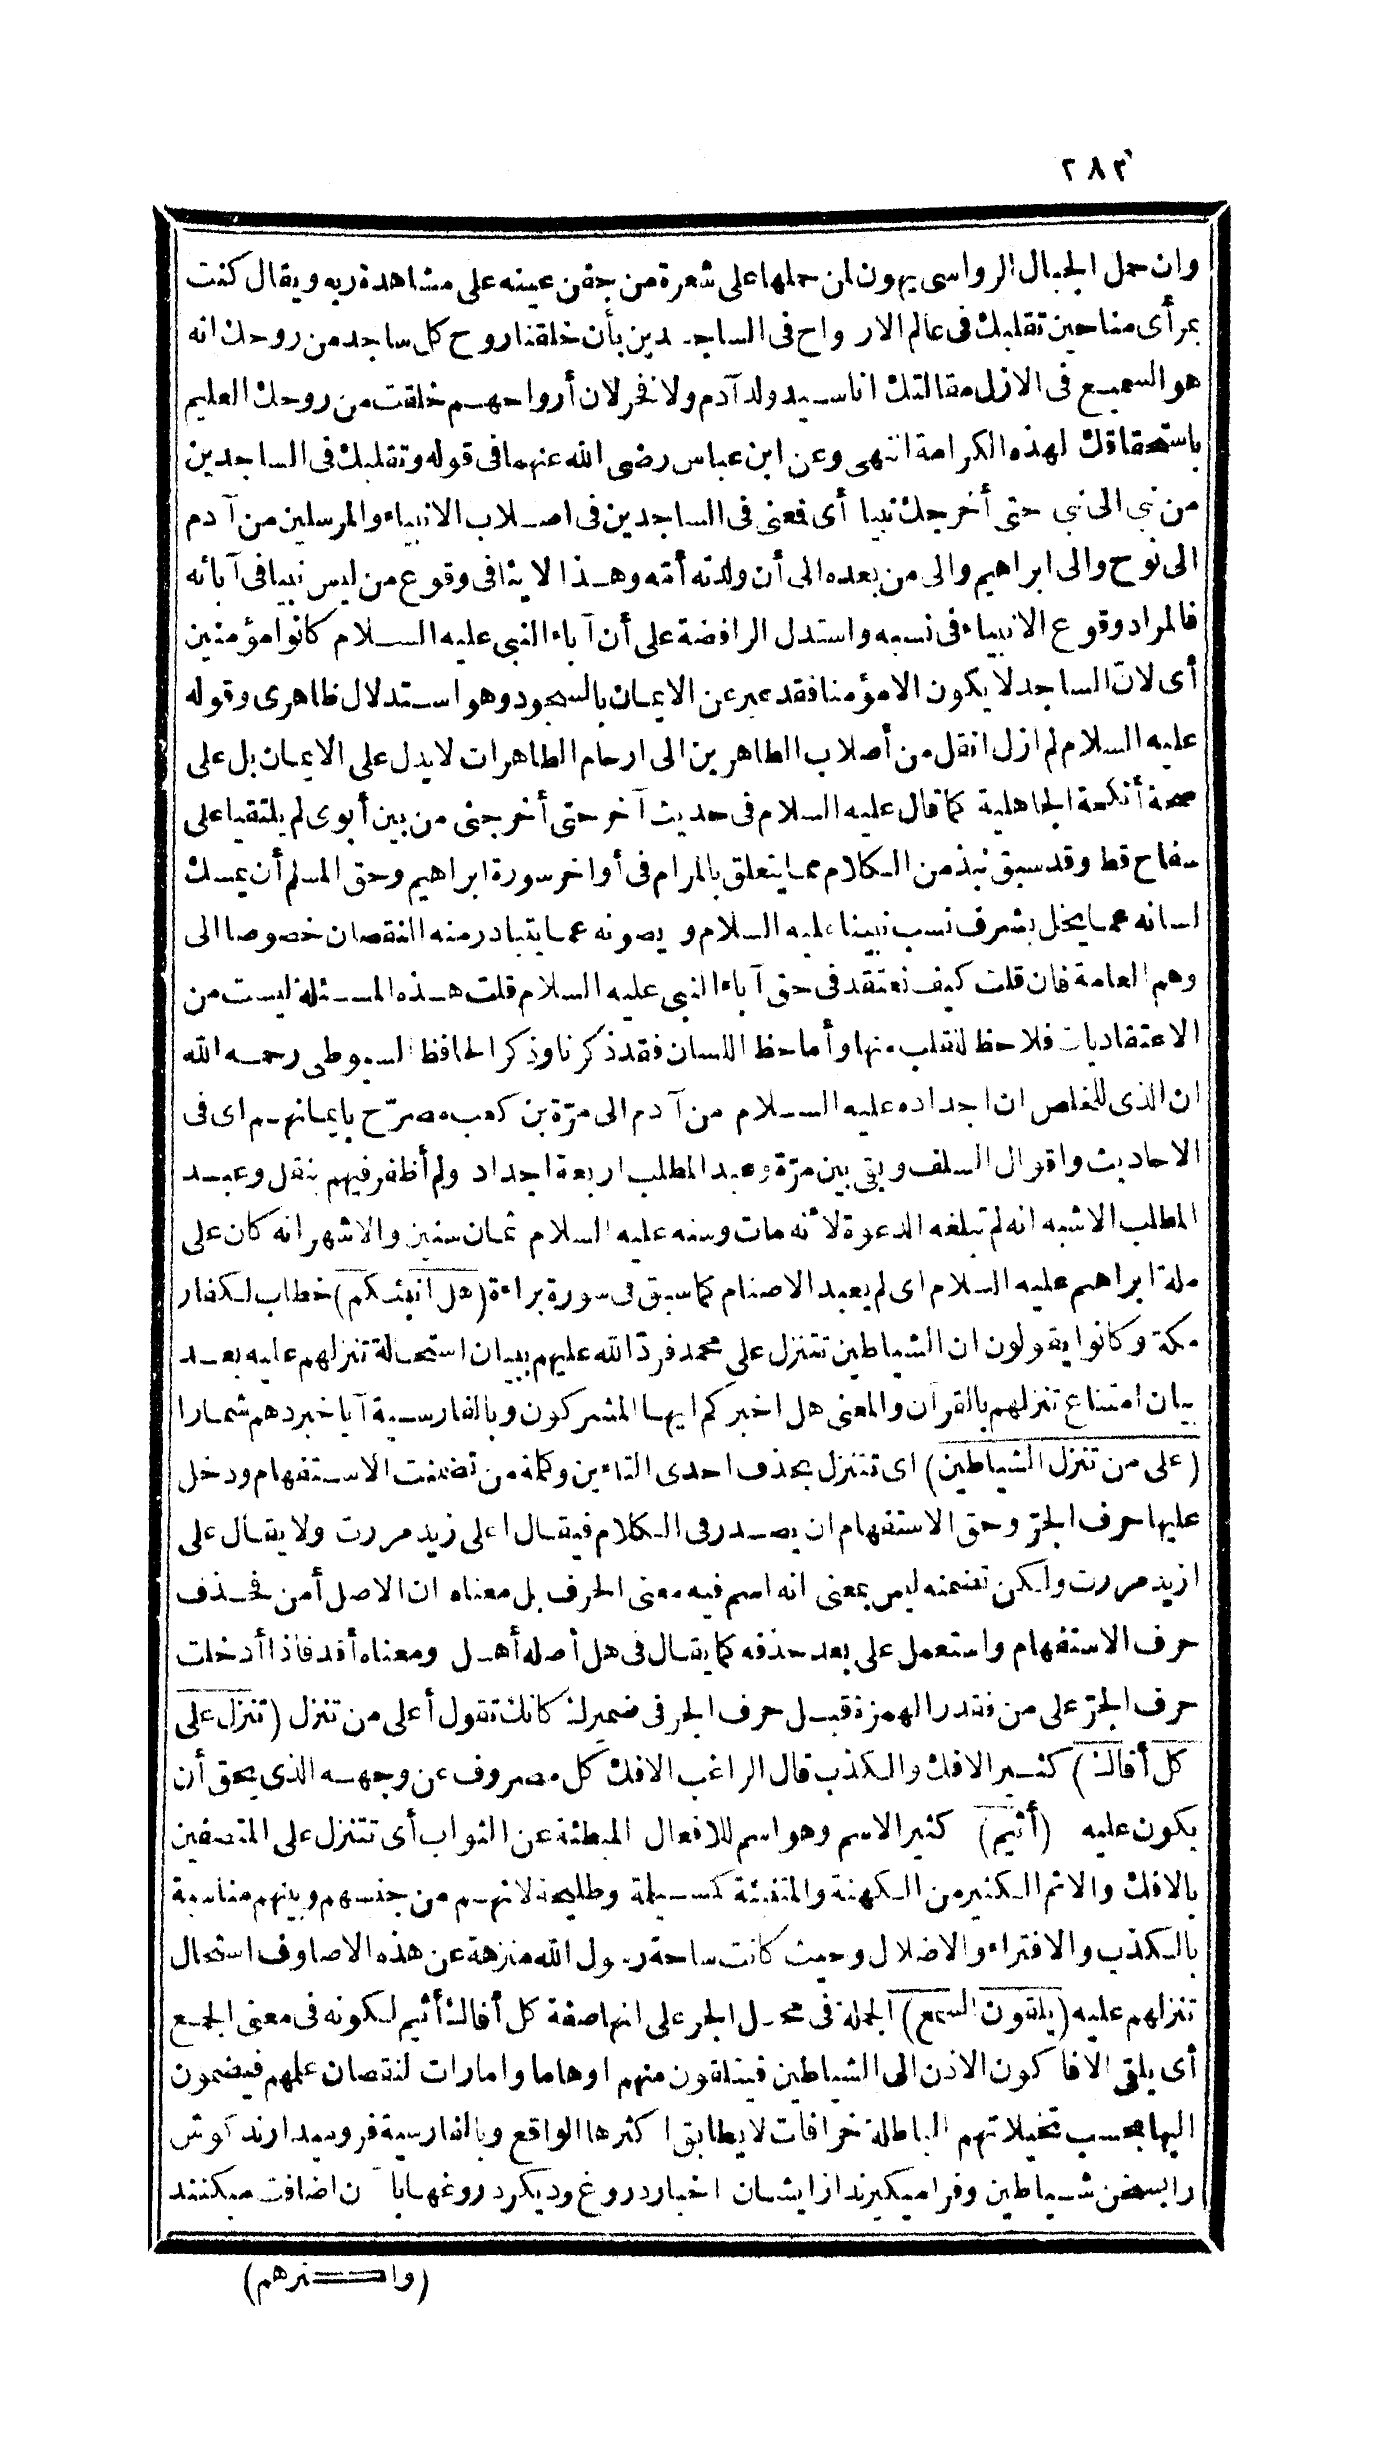 ٢٨٣
وان حمل الجبال الرواسى يهون لمن حملها على شعرة من جفن عينه على مشاهدة ربه ويقال كنت
بمرأى منا حين تقلبك فى عالم الارواح فى الساجدين بأن خلقنا روح كل ساجد من روحك انه
هو السميع فى الازل مقالتك انا سيد ولد آدم ولا فخر لان أرواحهم خلقت من روحك العليم
باستحقاقك لهذه الكرامة انتهى وعن ابن عباس رضى الله عنهما فى قوله وتقلبك فى الساجدين
من نبى الى نبى حتى أخرجك نبيا أى فمعنى فى الساجدين فى اصلاب الانبياء والمرسلين من آدم
الى نوح والى ابراهيم والى من بعده الى أن ولدته أمّه وهذا لا ينافى وقوع من ليس نبيا فى آبائه
فالمراد وقوع الانبياء فى نسبه واستدل الرافضة على أن آباء النبى عليه السلام كانوا مؤمنين
أى لانّ الساجد لا يكون الا مؤمنا فقد عبر عن الايمان بالسجود وهو استدلال ظاهرى وقوله
عليه السلام لم ازل انقل من أصلاب الطاهرين الى ارحام الطاهرات لا يدل على الايمان بل على
صحة أنكحة الجاهلية كما قال عليه السلام فى حديث آخر حتى أخرجنى من بين أبوى لم يلتقيا على
سفاح قط وقد سبق نبذ من الكلام مما يتعلق بالمرام فى أواخر سورة ابراهيم وحق المسلم أن يمسك
لسانه عما يخل بشرف نسب نبينا عليه السلام ويصونه عما يتبادر منه النقصان خصوصا الى
وهم العامة فان قلت كيف نعتقد فى حق آباء النبى عليه السلام قلت هذه المسئلة ليست من
الاعتقاديات فلا حظ للقلب منها وأما حظ اللسان فقد ذكرنا وذكر الحافظ السيوطى رحمه الله
ان الذى للخلص ان اجداده عليه السلام من آدم الى مرّة بن كعب مصرّح بايمانهم اى فى
الاحاديث واقوال السلف وبقى بين مرّة وعبد المطلب اربعة اجداد ولم أظفر فيهم بنقل وعبد
المطلب الاشبه انه لم تبلغه الدعوة لأنه مات وسنه عليه السلام ثمان سنين والاشهر انه كان على
ملة ابراهيم عليه السلام اى لم يعبد الاصنام كما سبق فى سورة براءة (هل انبئكم) خطاب لكفار
مكة وكانوا يقولون ان الشياطين تتنزل على محمد فردّ الله عليهم ببيان استحالة تنزلهم عليه بعد
بيان امتناع تنزلهم بالقرآن والمعنى هل اخبركم ايها المشركون وبالفارسية آيا خبر دهم شمارا
(على من تنزل الشياطين) اى تتنزل بحذف احدى التاءين وكلمة من تضمنت الاستفهام ودخل
عليها حرف الجرّ وحق الاستفهام ان يصدر فى الكلام فيقال اعلى زيد مررت ولا يقال على
ازيد مررت ولكن تضمنه ليس بمعنى انه اسم فيه معنى الحرف بل معناه ان الاصل أمن فحذف
حرف الاستفهام واستعمل على بعد حذفه كما يقال فى هل أصله أهل ومعناه أقد فاذا أدخلت
حرف الجرّ على من فقدر الهمزة قبل حرف الجر فى ضميرك كانك تقول أعلى من تنزل (تنزل على
كل أفاك) كثير الافك والكذب قال الراغب الافك كل مصروف عن وجهه الذى يحق أن
يكون عليه (أثيم) كثير الاسم وهو اسم للافعال المبطئة عن الثواب أى تتنزل على المتصفين
بالافك والاثم الكثير من الكهنة والمتنبئة كمسيلمة وطليحة لانهم من جنسهم وبينهم مناسبة
بالكذب والافتراء والاضلال وحيث كانت ساحة رسول الله منزهة عن هذه الاوصاف استحال
تنزلهم عليه (يلقون السمع) الجملة فى محل الجر على انها صفة كل أفاك أثيم لكونه فى معنى الجمع
أى يلقى الافاكون الاذن الى الشياطين فيتلقون منهم اوهاما وامارات لنقصان علمهم فيضمون
اليها بحسب تخيلاتهم الباطلة خرافات لا يطابق اكثرها الواقع وبالفارسية فروميدارند كوش
را بسخن شياطين وفرا ميكيرند از ايشان اخبار دروغ وديكر دروغها با آن اضافت ميكنند
(واكثرهم)